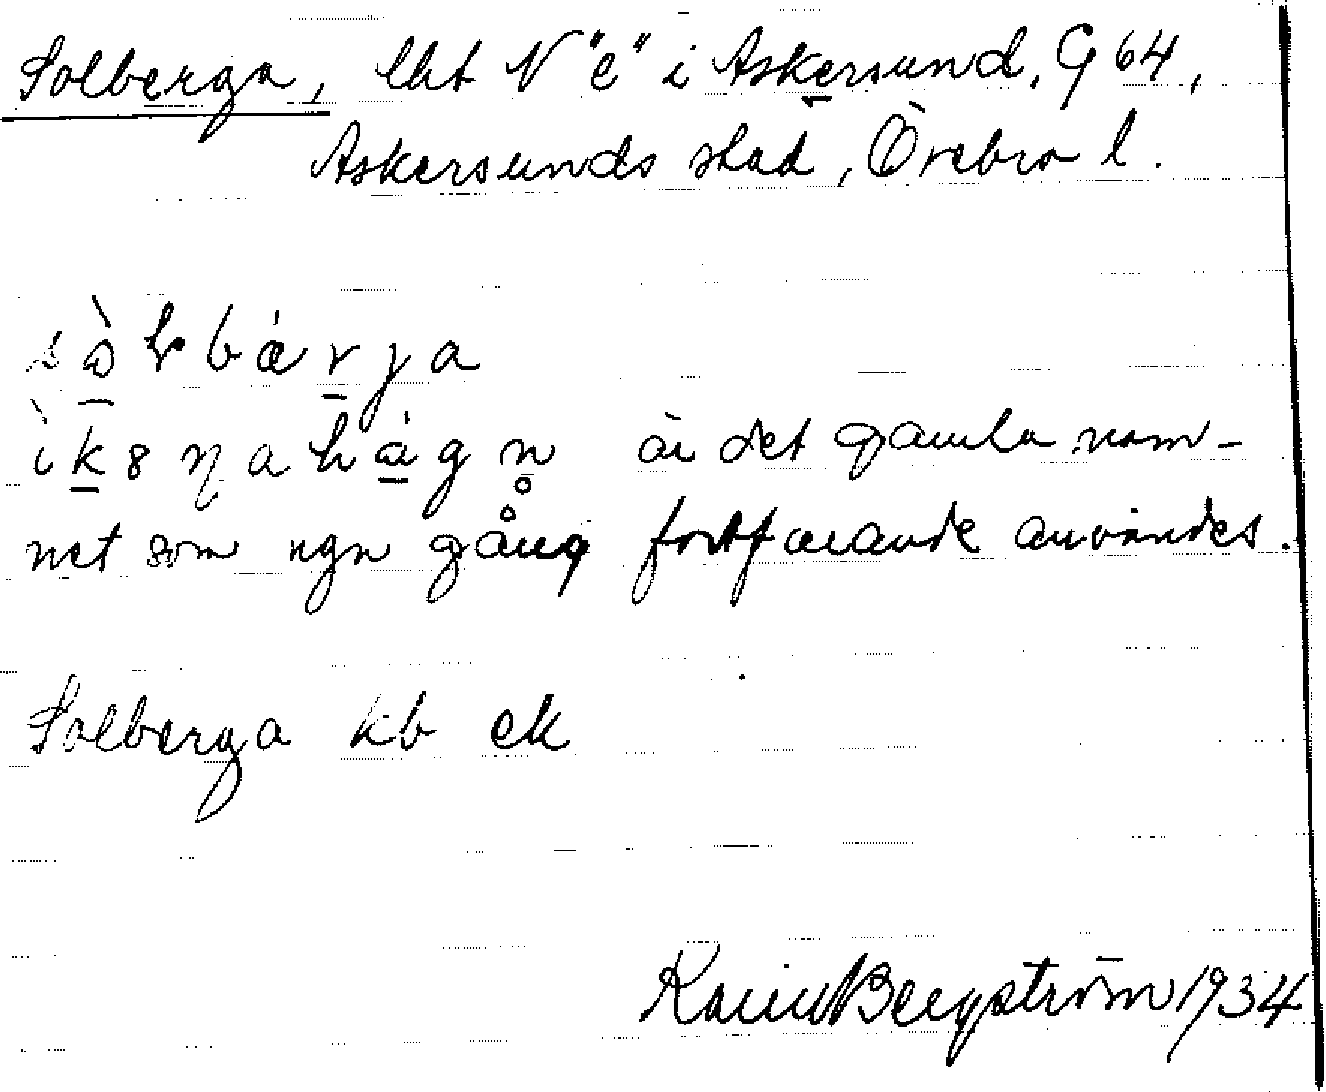 Solberga, lht N "e" i Askersund, G 64,
Askersunds stad, Örebro l.
är det gamla nam-
net som ngn gång fortfarande användes.
Solberga kb ek
Karin Bergström 1934